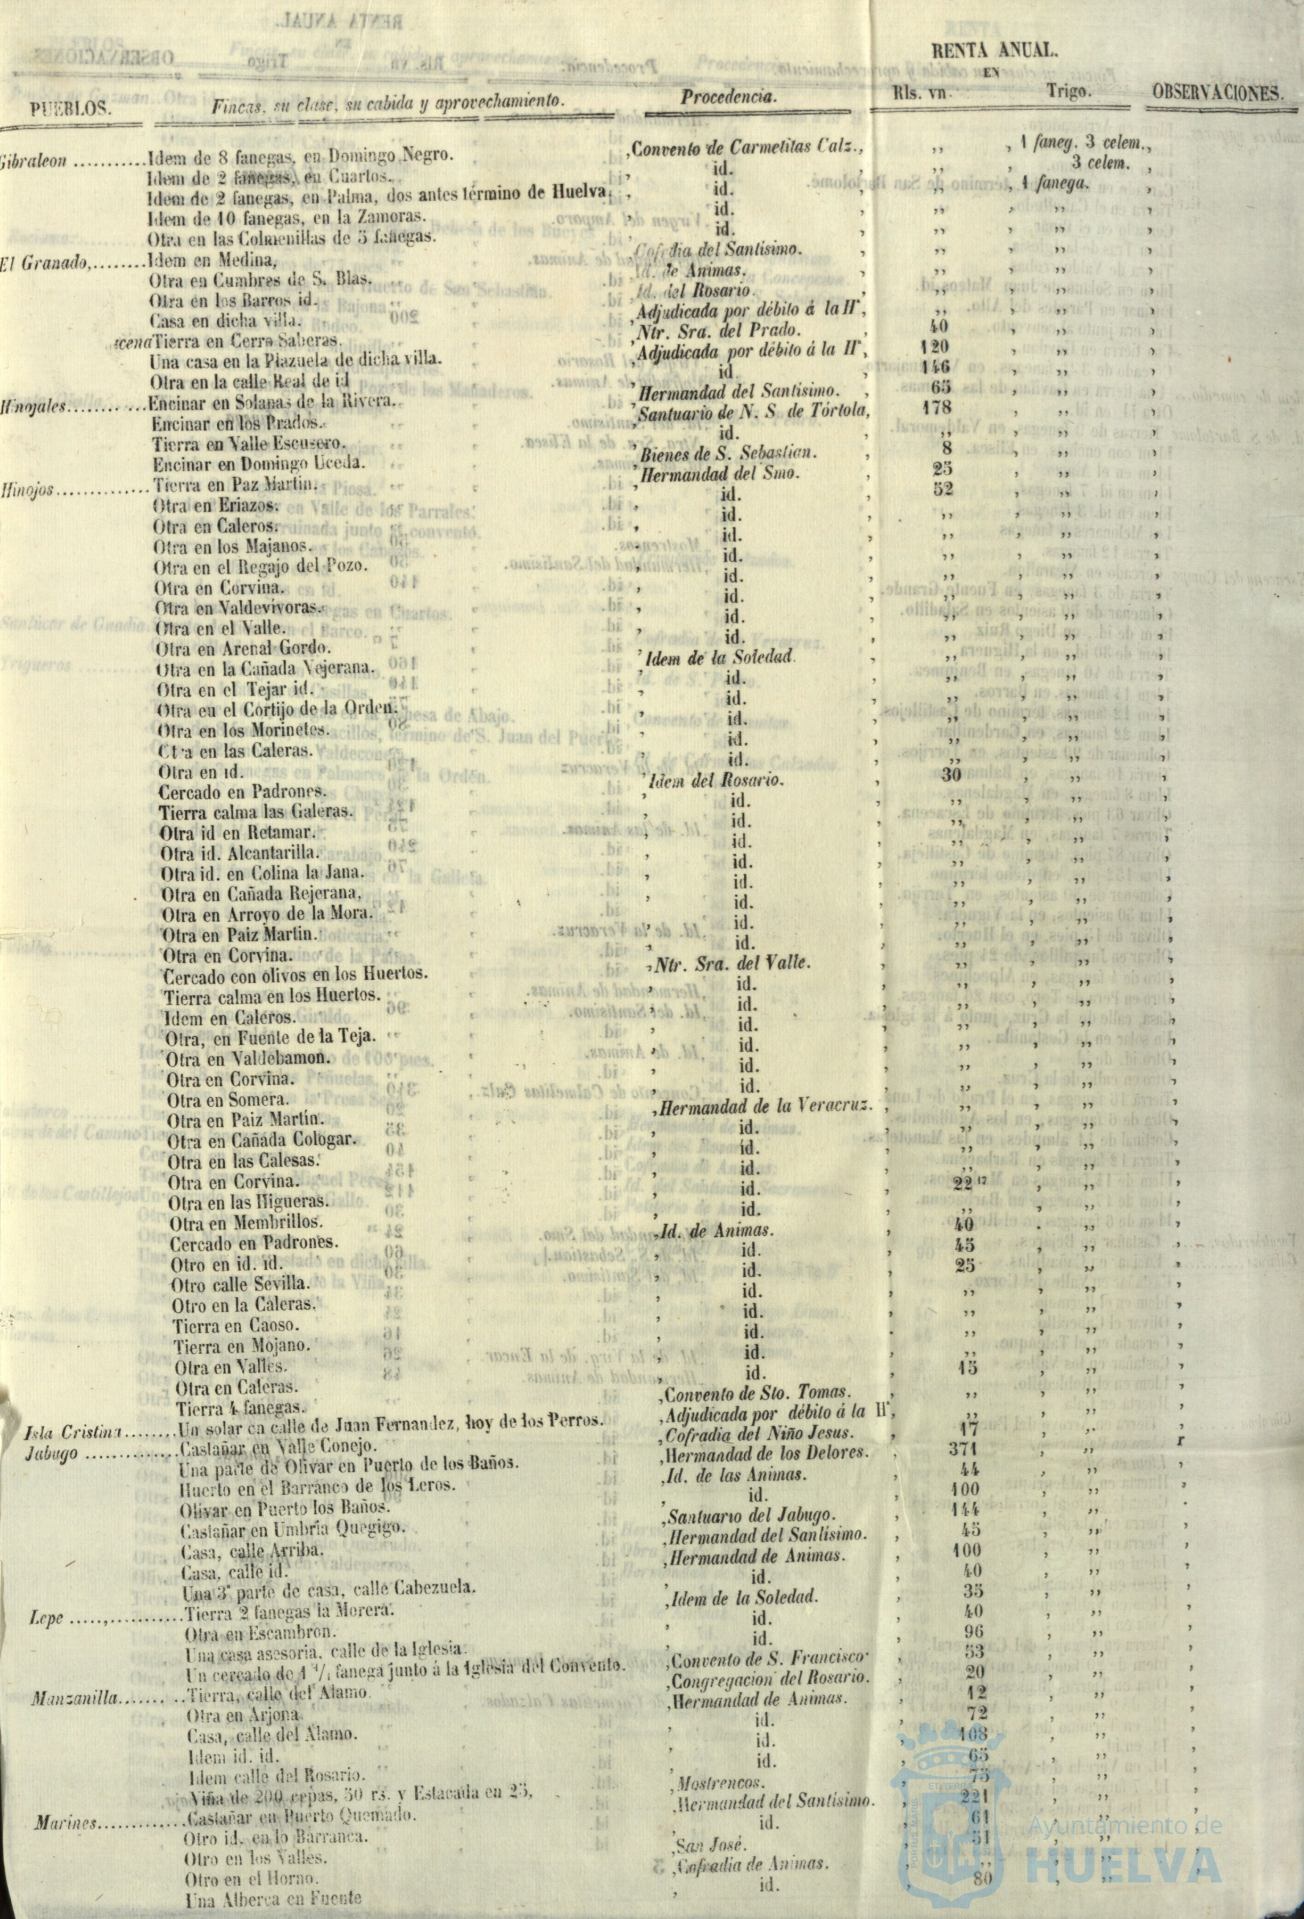 RENTA ANUAL.
EN
PUEBLOS. Fincas, su clase, su cabida y aprovechamiento. Procedencia. Rls. vn. Trigo. OBSERVACIONES.
Gibraleon ...........Idem de 8 fanegas, en Domingo Negro. ,Convento de Carmelitas Calz., ,, , 1 faneg. 3 celem.,
Idem de 2 fanegas, en Cuartos. , id. , ,, 3 celem. ,
Idem de 2 fanegas, en Palma, dos antes término de Huelva. , id. , ,, , 1 fanega. ,
Idem de 10 fanegas, en la Zamoras. , id. , ,, , ,, ,
Otra en las Colmenillas de 5 fanegas. , id. , ,, , ,, ,
El Granado,........Idem en Medina, ,Cofradia del Santisimo. , ,, , ,, ,
Otra en Cumbres de S. Blas. ,Id. de Animas. , ,, , ,, ,
Otra en los Barros id. ,Id. del Rosario. , ,, , ,, ,
Casa en dicha villa. ,Adjudicada por débito á la Hª, ,, , ,, ,
scena Tierra en Cerro Saberas. ,Ntr. Sra. del Prado. , 40 , ,, ,
Una casa en la Plazuela de dicha villa. ,Adjudicada por débito á la Hª, 120 , ,, ,
Otra en la calle Real de id , id. , 146 , ,, ,
Hinojales...........Encinar en Solanas de la Rivera. ,Hermandad del Santisimo. , 65 , ,, ,
Encinar en los Prados. ,Santuario de N. S de Tórtola, 178 , ,, ,
Tierra en Valle Escusero. , id. , ,, , ,, ,
Encinar en Domingo Uceda. ,Bienes de S. Sebastian. , 8 , ,, ,
Hinojos..............Tierra en Paz Martin. ,Hermandad del Smo. , 25 , ,, ,
Otra en Eriazos. , id. , 52 , ,, ,
Otra en Caleros. , id. , ,, , ,, ,
Otra en los Majanos. , id. , ,, , ,, ,
Otra en el Regajo del Pozo. , id. , ,, , ,, ,
Otra en Corvina. , id. , ,, , ,, ,
Otra en Valdevivoras. , id. , ,, , ,, ,
Otra en el Valle. , id. , ,, , ,, ,
Otra en Arenal Gordo. , id. , ,, , ,, ,
Otra en la Cañada Vejerana. ,Idem de la Soledad. , ,, , ,, ,
Otra en el Tejar id. , id. , ,, , ,, ,
Otra en el Cortijo de la Orden. , id. , ,, , ,, ,
Otra en los Morinetes. , id. , ,, , ,, ,
Otra en las Caleras. , id. , ,, , ,, ,
Otra en id. , id. , ,, , ,, ,
Cercado en Padrones. ,Idem del Rosario. , 30 , ,, ,
Tierra calma las Galeras. , id. , ,, , ,, ,
Otra id en Retamar. , id. , ,, , ,, ,
Otra id. Alcantarilla. , id. , ,, , ,, ,
Otra id. en Colina la Jana. , id. , ,, , ,, ,
Otra en Cañada Rejerana. , id. , ,, , ,, ,
Otra en Arroyo de la Mora. , id. , ,, , ,, ,
Otra en Paiz Martin. , id. , ,, , ,, ,
Otra en Corvina. , id. , ,, , ,, ,
Cercado con olivos en los Huertos. ,Ntr. Sra. del Valle. , ,, , ,, ,
Tierra calma en los Huertos. , id. , ,, , ,, ,
Idem en Caleros. , id. , ,, , ,, ,
Otra, en Fuente de la Teja. , id. , ,, , ,, ,
Otra en Valdebamon. , id. , ,, , ,, ,
Otra en Corvina. , id. , ,, , ,, ,
Otra en Somera. , id. , ,, , ,, ,
Otra en Paiz Martin. ,Hermandad de la Veracruz. , ,, , ,, ,
Otra en Cañada Cologar. , id. , ,, , ,, ,
Otra en las Calesas. , id. , ,, , ,, ,
Otra en Corvina. , id. , ,, , ,, ,
Otra en las Higueras. , id. , 22 17 , ,, ,
Otra en Membrillos. , id. , ,, , ,, ,
Cercado en Padrones. ,Id. de Animas. , 40 , ,, ,
Otro en id. id. , id. , 45 , ,, ,
Otro calle Sevilla. , id. , 25 , ,, ,
Otro en la Caleras. , id. , ,, , ,, ,
Tierra en Caoso. , id. , ,, , ,, ,
Tierra en Mojano. , id. , ,, , ,, ,
Otra en Valles. , id. , ,, , ,, ,
Otra en Caleras. , id. , 15 , ,, ,
Tierra 4 fanegas. ,Convento de Sto. Tomas. , ,, , ,, ,
Isla Cristina........Un solar en calle de Juan Fernandez, hoy de los Perros. ,Adjudicada por débito á la Hª, ,, , ,, ,
Jabugo ..............Castañar en Valle Conejo. ,Cofradia del Niño Jesus. , 17 , ,, ,
Una parte de Olivar en Puerto de los Baños. ,Hermandad de los Delores. , 371 , ,, ,
Huerto en el Barranco de los Leros. ,Id. de las Animas. , 44 , ,, ,
Olivar en Puerto los Baños. , id. , 100 , ,, ,
Castañar en Umbría Quegigo. ,Santuario del Jabugo. , 144 , ,, ,
Casa, calle Arriba. ,Hermandad del Santisimo. , 45 , ,, ,
Casa, calle id. ,Hermandad de Animas. , 100 , ,, ,
Una 3ª parte de casa, calle Cabezuela. , id. , 40 , ,, ,
Lepe .....,...........Tierra 2 fanegas la Morera. ,Idem de la Soledad. , 35 , ,, ,
Otra en Escambron. , id. , 40 , ,, ,
Una casa asesoria, calle de la Iglesia. , id. , 96 , ,, ,
Un cercado de 1 fanega junto á la Iglesia del Convento. ,Convento de S. Francisco. , 53 , ,, ,
Manzanilla..........Tierra, calle del Alamo. ,Congregacion del Rosario. , 20 , ,, ,
Otra en Arjona ,Hermandad de Animas. , 12 , ,, ,
Casa, calle del Alamo. , id. , 72 , ,, ,
Idem id. id. , id. , 108 , ,, ,
Idem calle del Rosario. , id. , 65 , ,, ,
Viña de 200 cepas, 50 rs. y Estacada en 25, ,Mostrencos. , 75 , ,, ,
Marines.............Castañar en Puerto Quemado. ,Hermandad del Santísimo. , 221 , ,, ,
Otro id. en lo Barranca. , id. , 61 , ,, ,
Otro en los Valles. ,San José. , 51 , ,, ,
Otro en el Horno. ,Cofradia de Animas. , ,, , ,, ,
Una Alberca en Fuente , id. , 80 , ,, ,
Ayuntamiento de
HUELVA